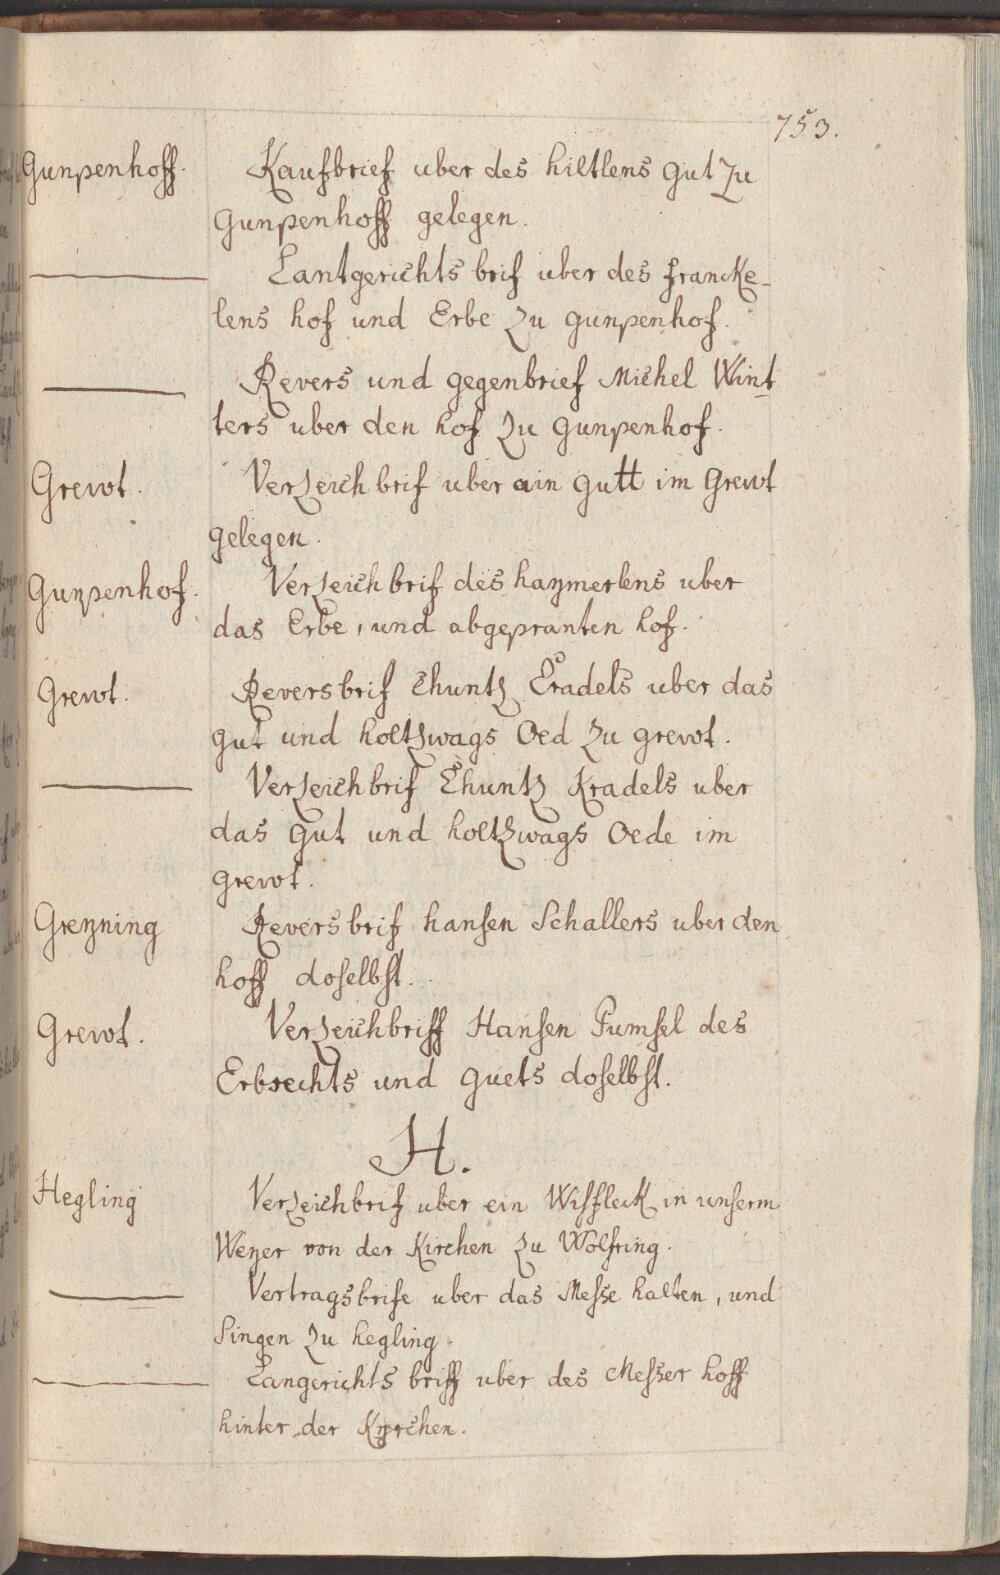 753.
Gunpenhoff. Kaufbrief uber des hiltlens gut zu
Gunpenhoff gelegen.
Lantgerichts brif uber des francke-
lens hof und Erbe zu gunpenhof.
Revers und gegenbrief Michel Wint
ters uber den hof zu gunpenhof.
Grewt. Verzeich brif uber ain gutt im Grewt
gelegen.
Gunpenhof. Verzeich brif des haymerlens uber
das Erbe, und abgepranten hof.
Grewt. Reversbrif Chuntz Cradels uber das
gut und holtzwags Oed zu grewt.
Verzeichbrif Chuntz Kradels uber
das gut und holtzwags Oede im
grewt.
Greyning Reversbrif hansen Schallers uber den
hoff doselbst.
Grewt. Verzeichbriff Hansen Pumsel des
Erbrechts und guets doselbst.
H.
Hegling Verzeichbrif uber ein Wisfleck in unserm
Weyer von der Kirchen zu Wolfring.
Vertragsbrife uber das Messe halten, und
Singen zu hegling.
Langerichts briff uber des Messer hoff
hinter der Kyrchen.